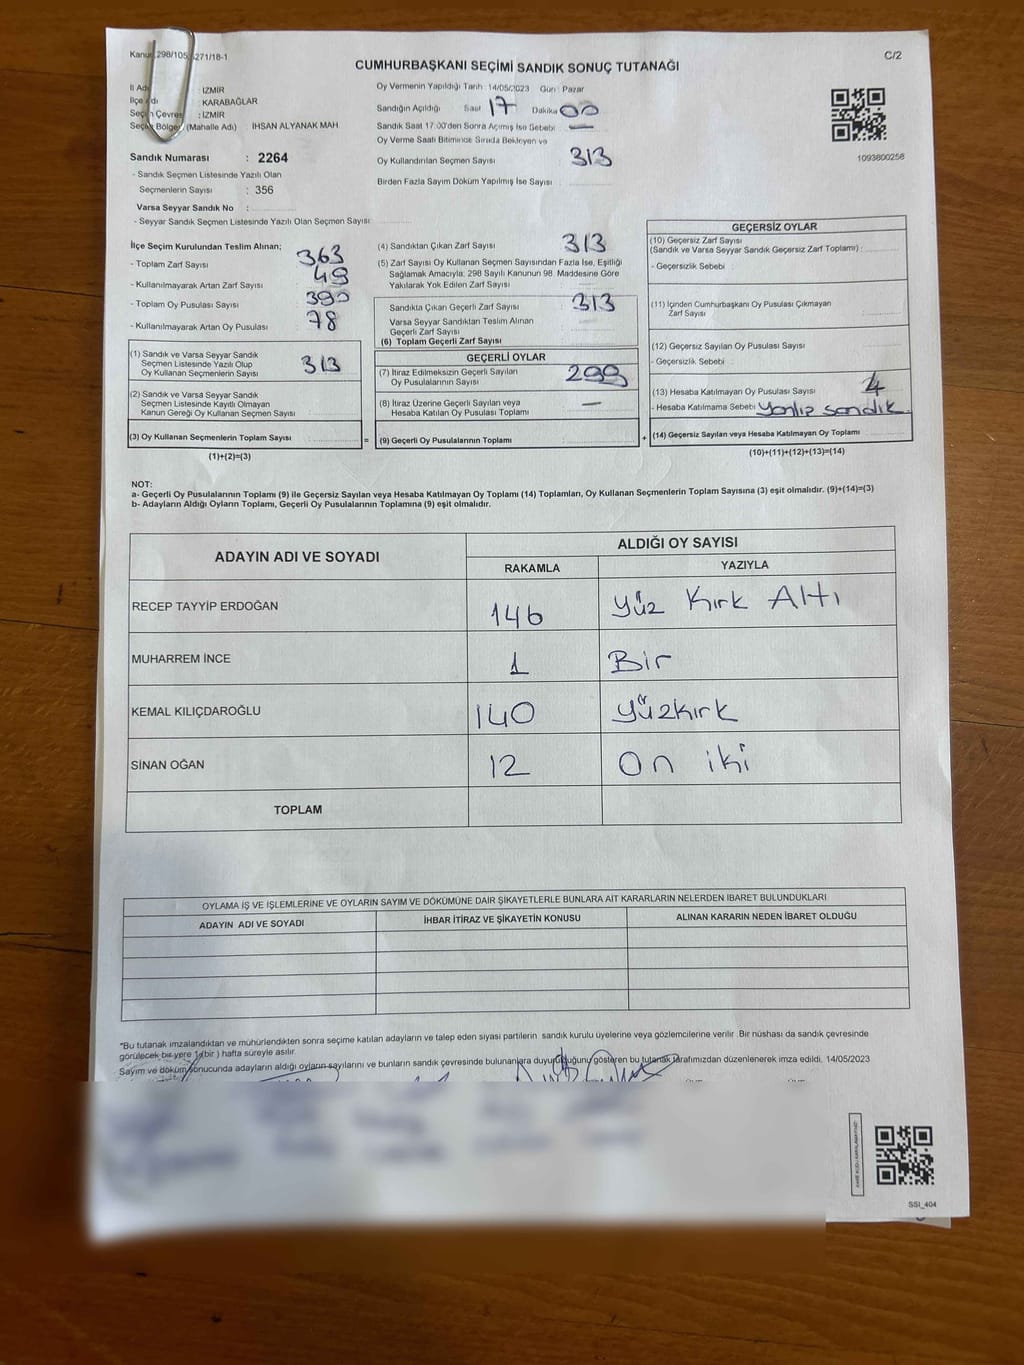 Kanun 298/105 271/18-1
C/2
CUMHURBAŞKANI SEÇİMİ SANDIK SONUÇ TUTANAĞI
İl Adı : İZMİR
İlçe Adı : KARABAĞLAR
Seçim Çevresi : İZMİR
Seçim Bölgesi (Mahalle Adı) : İHSAN ALYANAK MAH.
Sandık Numarası : 2264
- Sandık Seçmen Listesinde Yazılı Olan
Seçmenlerin Sayısı : 356
Varsa Seyyar Sandık No :
- Seyyar Sandık Seçmen Listesinde Yazılı Olan Seçmen Sayısı:
Oy Vermenin Yapıldığı Tarih: 14/05/2023 Gün : Pazar
Sandığın Açıldığı Saat 17 Dakika 00
Sandık Saat 17:00'den Sonra Açılmış İse Sebebi —
Oy Verme Saati Bitiminde Sırada Bekleyen ve
Oy Kullandırılan Seçmen Sayısı 313
Birden Fazla Sayım Döküm Yapılmış İse Sayısı
1093800256
İlçe Seçim Kurulundan Teslim Alınan;
- Toplam Zarf Sayısı 363
- Kullanılmayarak Artan Zarf Sayısı 49
- Toplam Oy Pusulası Sayısı 390
- Kullanılmayarak Artan Oy Pusulası 78
(1) Sandık ve Varsa Seyyar Sandık
Seçmen Listesinde Yazılı Olup
Oy Kullanan Seçmenlerin Sayısı 313
(2) Sandık ve Varsa Seyyar Sandık
Seçmen Listesinde Kayıtlı Olmayan
Kanun Gereği Oy Kullanan Seçmen Sayısı
(3) Oy Kullanan Seçmenlerin Toplam Sayısı =
(1)+(2)=(3)
(4) Sandıktan Çıkan Zarf Sayısı 313
(5) Zarf Sayısı Oy Kullanan Seçmen Sayısından Fazla İse, Eşitliği
Sağlamak Amacıyla; 298 Sayılı Kanunun 98. Maddesine Göre
Yakılarak Yok Edilen Zarf Sayısı
Sandıkta Çıkan Geçerli Zarf Sayısı 313
Varsa Seyyar Sandıktan Teslim Alınan
Geçerli Zarf Sayısı
(6) Toplam Geçerli Zarf Sayısı
GEÇERLİ OYLAR
(7) İtiraz Edilmeksizin Geçerli Sayılan
Oy Pusulalarının Sayısı 299
(8) İtiraz Üzerine Geçerli Sayılan veya
Hesaba Katılan Oy Pusulası Toplamı —
(9) Geçerli Oy Pusulalarının Toplamı +
GEÇERSİZ OYLAR
(10) Geçersiz Zarf Sayısı
(Sandık ve Varsa Seyyar Sandık Geçersiz Zarf Toplamı) :
- Geçersizlik Sebebi
(11) İçinden Cumhurbaşkanı Oy Pusulası Çıkmayan
Zarf Sayısı
(12) Geçersiz Sayılan Oy Pusulası Sayısı
- Geçersizlik Sebebi
(13) Hesaba Katılmayan Oy Pusulası Sayısı 4
- Hesaba Katılmama Sebebi Yanlış sandık
(14) Geçersiz Sayılan veya Hesaba Katılmayan Oy Toplamı
(10)+(11)+(12)+(13)=(14)
NOT:
a- Geçerli Oy Pusulalarının Toplamı (9) ile Geçersiz Sayılan veya Hesaba Katılmayan Oy Toplamı (14) Toplamları, Oy Kullanan Seçmenlerin Toplam Sayısına (3) eşit olmalıdır. (9)+(14)=(3)
b- Adayların Aldığı Oyların Toplamı, Geçerli Oy Pusulalarının Toplamına (9) eşit olmalıdır.
ADAYIN ADI VE SOYADI
ALDIĞI OY SAYISI
RAKAMLA YAZIYLA
RECEP TAYYİP ERDOĞAN 146 Yüz Kırk Altı
MUHARREM İNCE 1 Bir
KEMAL KILIÇDAROĞLU 140 Yüzkırk
SİNAN OĞAN 12 On iki
TOPLAM
OYLAMA İŞ VE İŞLEMLERİNE VE OYLARIN SAYIM VE DÖKÜMÜNE DAİR ŞİKAYETLERLE BUNLARA AİT KARARLARIN NELERDEN İBARET BULUNDUKLARI
ADAYIN ADI VE SOYADI İHBAR İTİRAZ VE ŞİKAYETİN KONUSU ALINAN KARARIN NEDEN İBARET OLDUĞU
*Bu tutanak imzalandıktan ve mühürlendikten sonra seçime katılan adayların ve talep eden siyasi partilerin sandık kurulu üyelerine veya gözlemcilerine verilir. Bir nüshası da sandık çevresinde
görülecek bir yere 1 (bir ) hafta süreyle asılır.
Sayım ve döküm sonucunda adayların aldığı oyların sayılarını ve bunların sandık çevresinde bulunanlara duyurulduğunu gösteren bu tutanak tarafımızdan düzenlenerek imza edildi. 14/05/2023
SSI_404